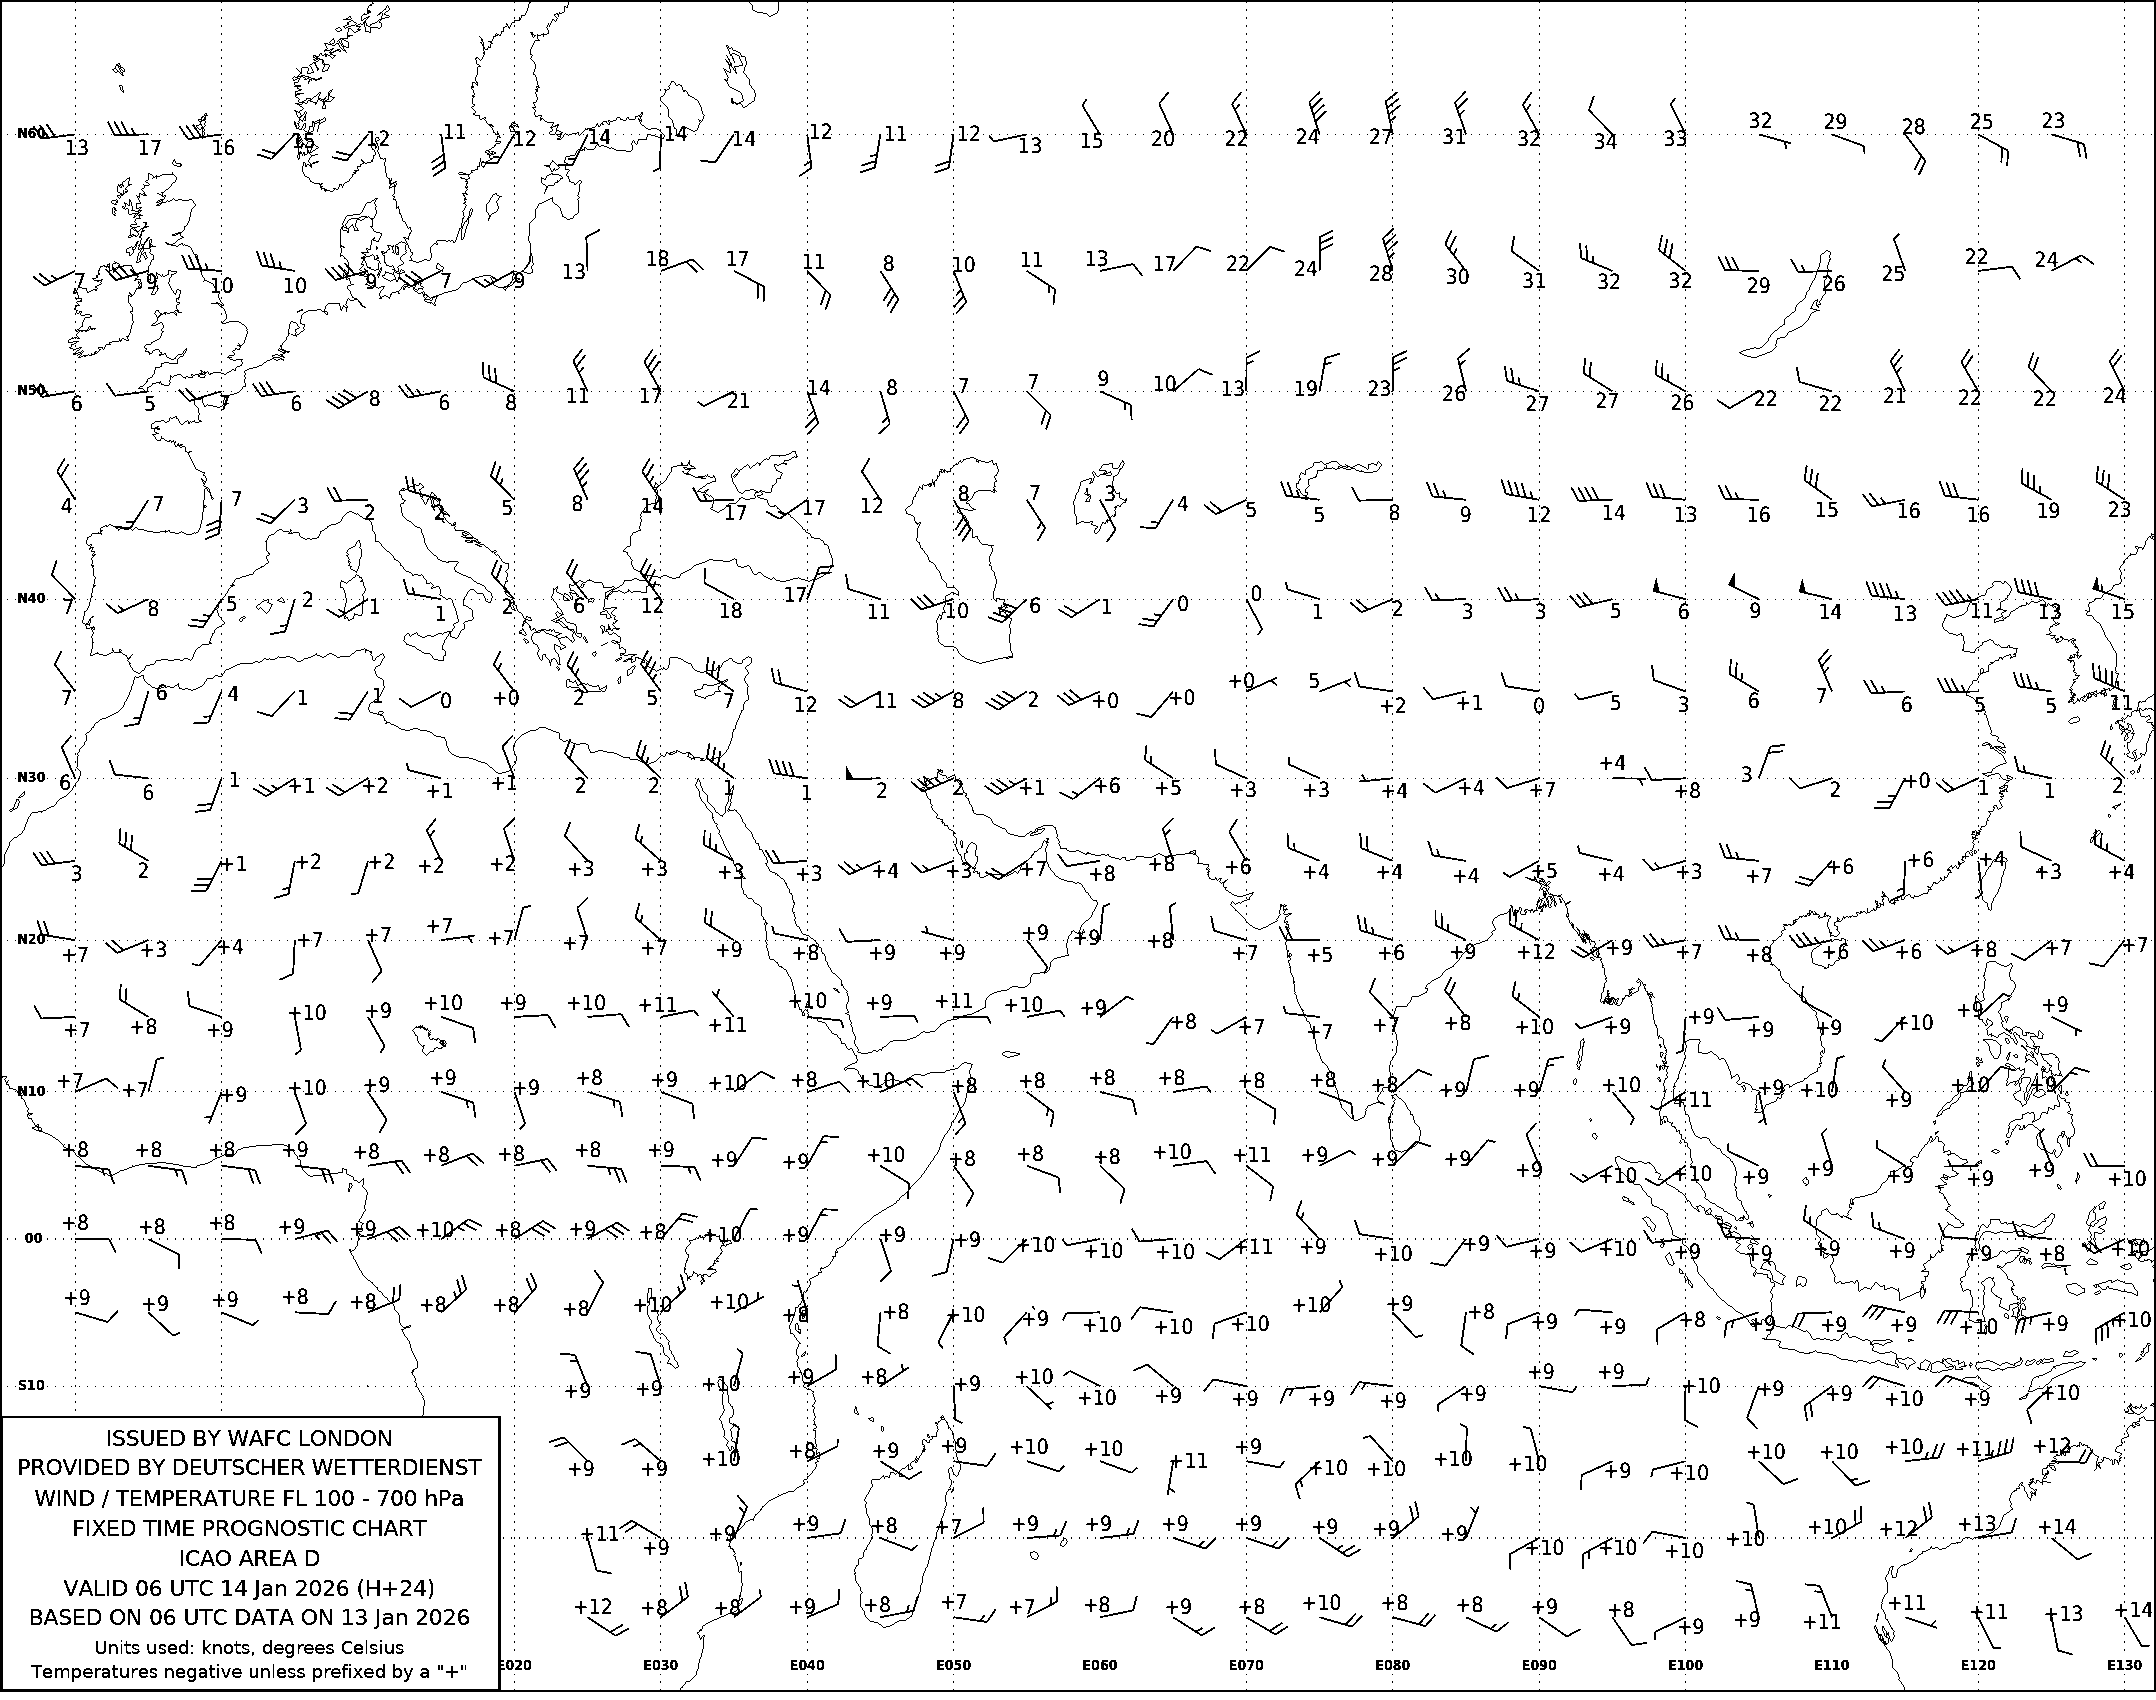 N60 13 17 16 15 12 11 12 14 14 14 12 11 12 13 15 20 22 24 27 31 32 34 33 32 29 28 25 23
7 9 10 10 9 7 9 13 18 17 11 8 10 11 13 17 22 24 28 30 31 32 32 29 26 25 22 24
N50 6 5 7 6 8 6 8 11 17 21 14 8 7 7 9 10 13 19 23 26 27 27 26 22 22 21 22 22 24
4 7 7 3 2 2 5 8 14 17 17 12 8 7 3 4 5 5 8 9 12 14 13 16 15 16 16 19 23
N40 7 8 5 2 1 1 2 6 12 18 17 11 10 6 1 0 0 1 2 3 3 5 6 9 14 13 11 13 15
7 6 4 1 1 0 +0 2 5 7 12 11 8 2 +0 +0 +0 5 +2 +1 0 5 3 6 7 6 5 5 11
N30 6 6 1 +1 +2 +1 +1 2 2 1 1 2 2 +1 +6 +5 +3 +3 +4 +4 +7 +4 +8 3 2 +0 1 1 2
3 2 +1 +2 +2 +2 +2 +3 +3 +3 +3 +4 +3 +7 +8 +8 +6 +4 +4 +4 +5 +4 +3 +7 +6 +6 +4 +3 +4
N20 +7 +3 +4 +7 +7 +7 +7 +7 +7 +9 +8 +9 +9 +9 +9 +8 +7 +5 +6 +9 +12 +9 +7 +8 +6 +6 +8 +7 +7
+7 +8 +9 +10 +9 +10 +9 +10 +11 +11 +10 +9 +11 +10 +9 +8 +7 +7 +7 +8 +10 +9 +9 +9 +9 +10 +9 +9
N10 +7 +7 +9 +10 +9 +9 +9 +8 +9 +10 +8 +10 +8 +8 +8 +8 +8 +8 +8 +9 +9 +10 +11 +9 +10 +9 +10 +9
+8 +8 +8 +9 +8 +8 +8 +8 +9 +9 +9 +10 +8 +8 +8 +10 +11 +9 +9 +9 +9 +10 +10 +9 +9 +9 +9 +9 +10
00 +8 +8 +8 +9 +9 +10 +8 +9 +8 +10 +9 +9 +9 +10 +10 +10 +11 +9 +10 +9 +9 +10 +9 +9 +9 +9 +9 +8 +10
+9 +9 +9 +8 +8 +8 +8 +8 +10 +10 +8 +8 +10 +9 +10 +10 +10 +10 +9 +8 +9 +9 +8 +9 +9 +9 +10 +9 +10
S10 +9 +9 +10 +9 +8 +9 +10 +10 +9 +9 +9 +9 +9 +9 +9 +10 +9 +9 +10 +9 +10
+9 +9 +10 +8 +9 +9 +10 +10 +11 +9 +10 +10 +10 +10 +9 +10 +10 +10 +10 +11 +12
+11 +9 +9 +9 +8 +7 +9 +9 +9 +9 +9 +9 +9 +10 +10 +10 +10 +10 +12 +13 +14
+12 +8 +8 +9 +8 +7 +7 +8 +9 +8 +10 +8 +8 +9 +8 +9 +9 +11 +11 +11 +13 +14
E020 E030 E040 E050 E060 E070 E080 E090 E100 E110 E120 E130
ISSUED BY WAFC LONDON
PROVIDED BY DEUTSCHER WETTERDIENST
WIND / TEMPERATURE FL 100 - 700 hPa
FIXED TIME PROGNOSTIC CHART
ICAO AREA D
VALID 06 UTC 14 Jan 2026 (H+24)
BASED ON 06 UTC DATA ON 13 Jan 2026
Units used: knots, degrees Celsius
Temperatures negative unless prefixed by a "+"